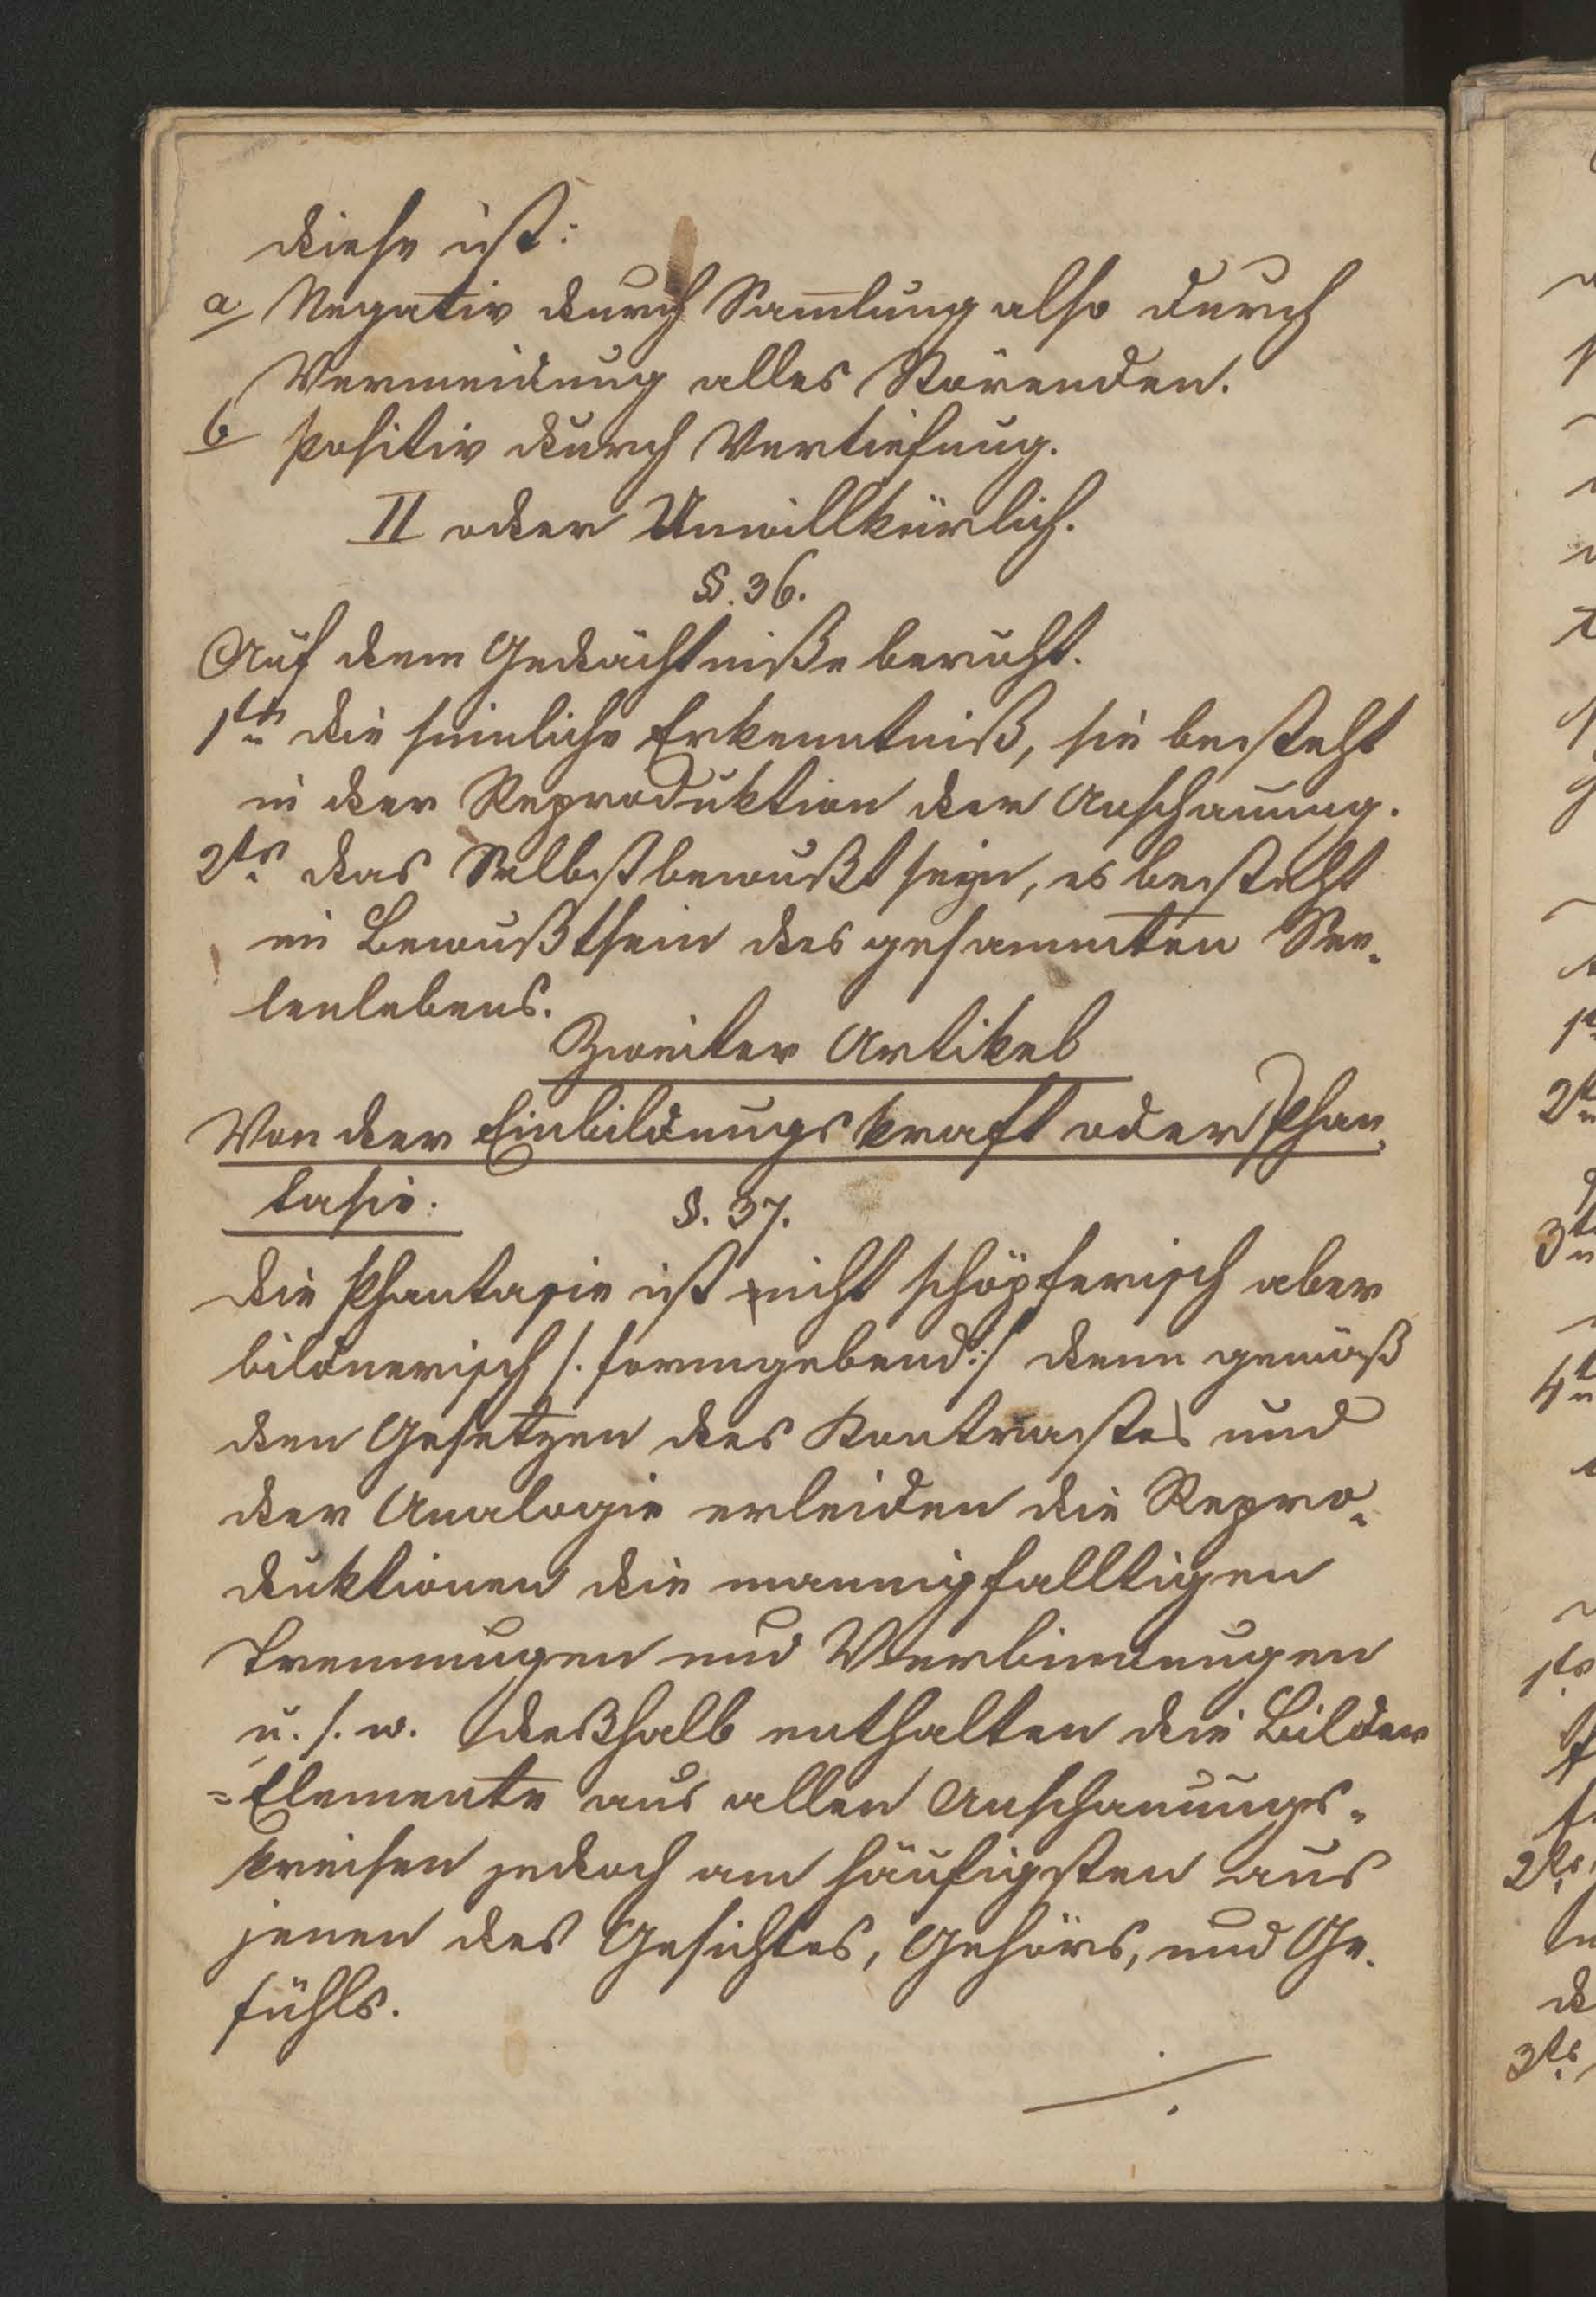 diese ist:
a Negativ durch Sam̄lung also durch
Vermeidung alles Störenden.
b positiv durch Vertiefung.
II oder Unwillkürlich.
§. 36.
Auf dem Gedächtniße beruht.
1tn die sinnliche Erkenntniß, sie besteht
in der Reproduktion der Anschauung.
2tn das Selbstbewußtseyn, es besteht
im Bewußtsein des gesammten See-
lenlebens.
Zweiter Artikel
Von der Einbildungskraft oder Phan-
tasie.
§. 37.
Die Phantasie ist nicht schöpferisch aber
bildnerisch /. formgebend:/ denn gemäß
den Gesetzen des Kontrastes und
der Analogie erleiden die Repro-
duktionen die mannigfalltigen
Trennungen und Verbindungen
u. s. w. deßhalb enthalten die Bilder
=Elemente aus allen Anschauungs-
kreisen jedoch am häufigsten aus
jenen des Gesichtes, Gehörs, und Ge-
fühls.